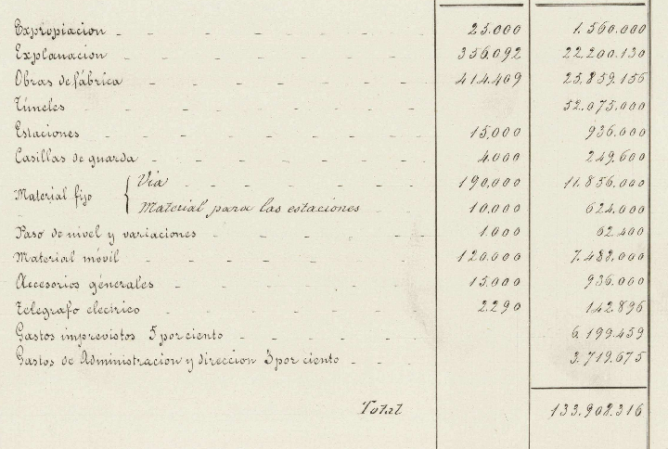 Expropiacion 25.000 1.560.000
Explanacion 356.092 22.200.130
Obras de fábrica 414.409 25.859.156
Túneles 52.075.000
Estaciones 15.000 936.000
Casillas de guarda 4.000 249.600
Material fijo { Via 190.000 11.856.000
Material para las estaciones 10.000 624.000
Paso de nivel y variaciones 1.000 62.400
Material móvil 120.000 7.488.000
Accesorios génerales 15.000 936.000
Telegrafo electrico 2290 142.896
Gastos imprevistos 5 por ciento 6.199.459
Gastos de Administracion y direccion 3 por ciento 3.719.675
Total 133.908.316